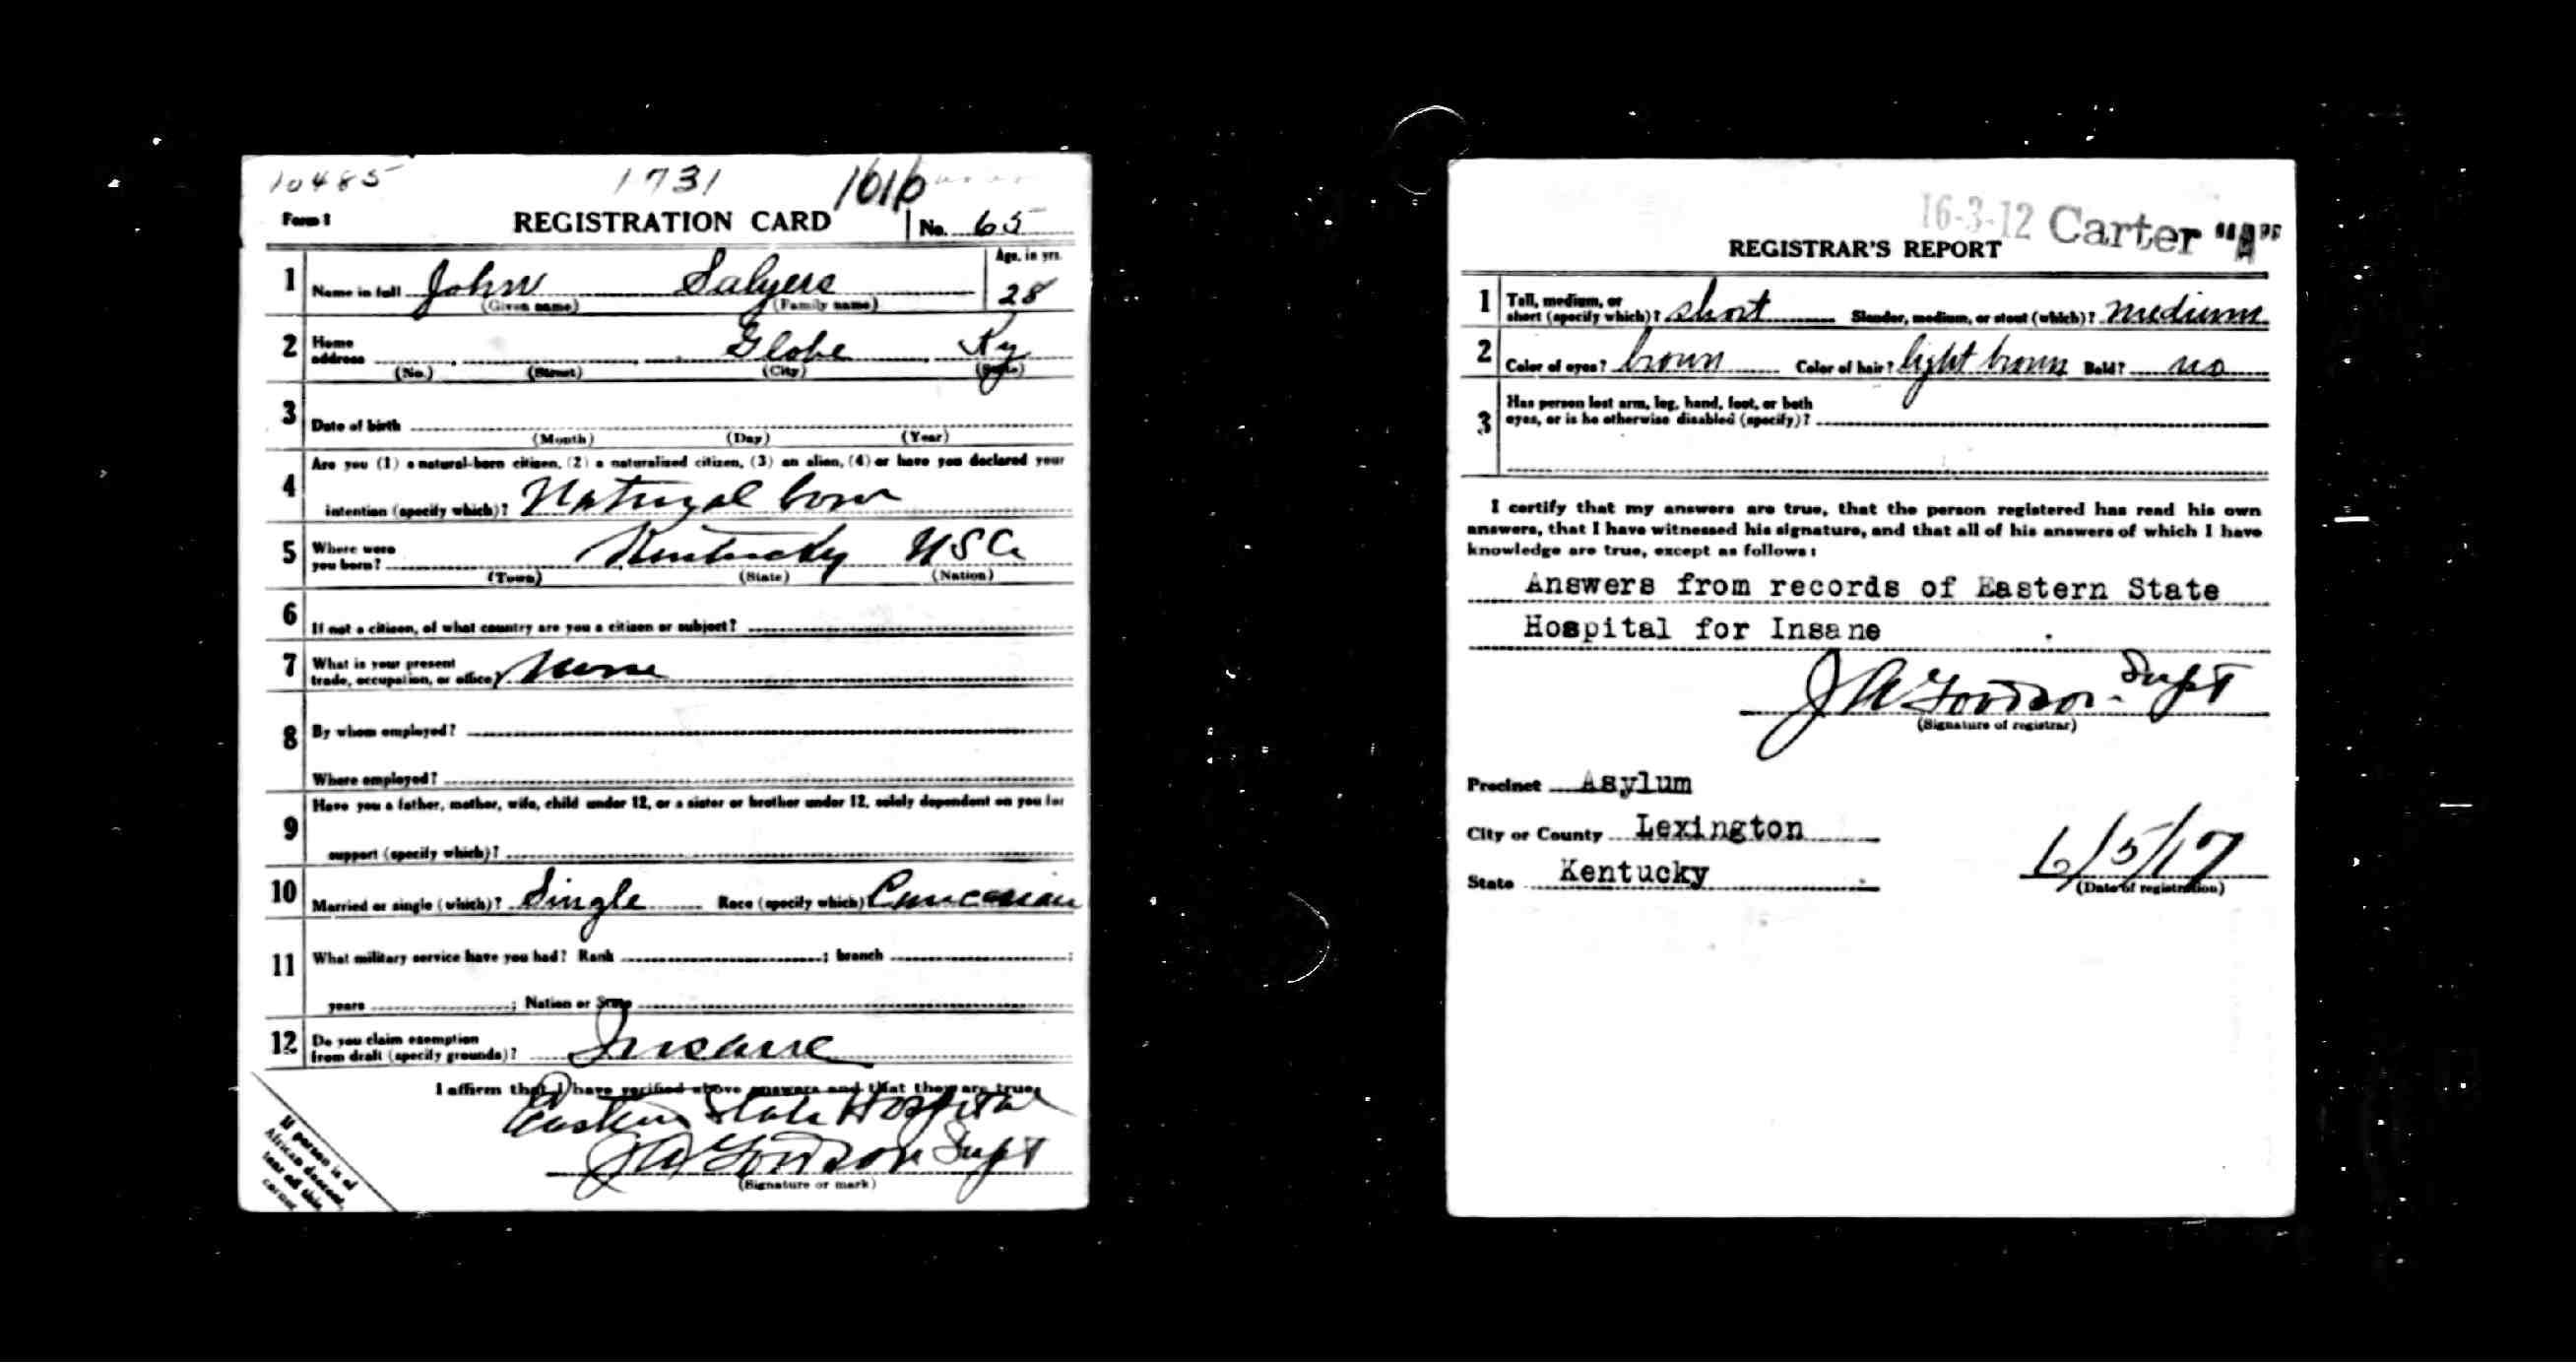 10485 1731 1616
Form 1 REGISTRATION CARD No. 65
1 Name in full John Salyers Age, in yrs. 28
(Given name) (Family name)
2 Home address Globe Ky
(No.) (Street) (City) (State)
3 Date of birth
(Month) (Day) (Year)
4 Are you (1) a natural-born citizen, (2) a naturalized citizen, (3) an alien, (4) or have you declared your
intention (specify which)? Natural born
5 Where were you born? Kentucky USA
(Town) (State) (Nation)
6 If not a citizen, of what country are you a citizen or subject?
7 What is your present trade, occupation, or office? None
8 By whom employed?
Where employed?
9 Have you a father, mother, wife, child under 12, or a sister or brother under 12, solely dependent on you for
support (specify which)?
10 Married or single (which)? Single Race (specify which) Caucasian
11 What military service have you had? Rank ; branch ;
years ; Nation or State
12 Do you claim exemption from draft (specify grounds)? Insane
I affirm that I have verified above answers and that they are true.
Eastern State Hospital
J A Goodson Supt
(Signature or mark)
If person is of
African descent,
tear off this
corner
16-3-12 Carter
REGISTRAR'S REPORT
1 Tall, medium, or short (specify which)? short Slender, medium, or stout (which)? medium
2 Color of eyes? brown Color of hair? light brown Bald? no
3 Has person lost arm, leg, hand, foot, or both
eyes, or is he otherwise disabled (specify)?
I certify that my answers are true, that the person registered has read his own
answers, that I have witnessed his signature, and that all of his answers of which I have
knowledge are true, except as follows:
Answers from records of Eastern State
Hospital for Insane
J A Goodson Supt
(Signature of registrar)
Precinct Asylum
City or County Lexington
State Kentucky
6/5/17
(Date of registration)